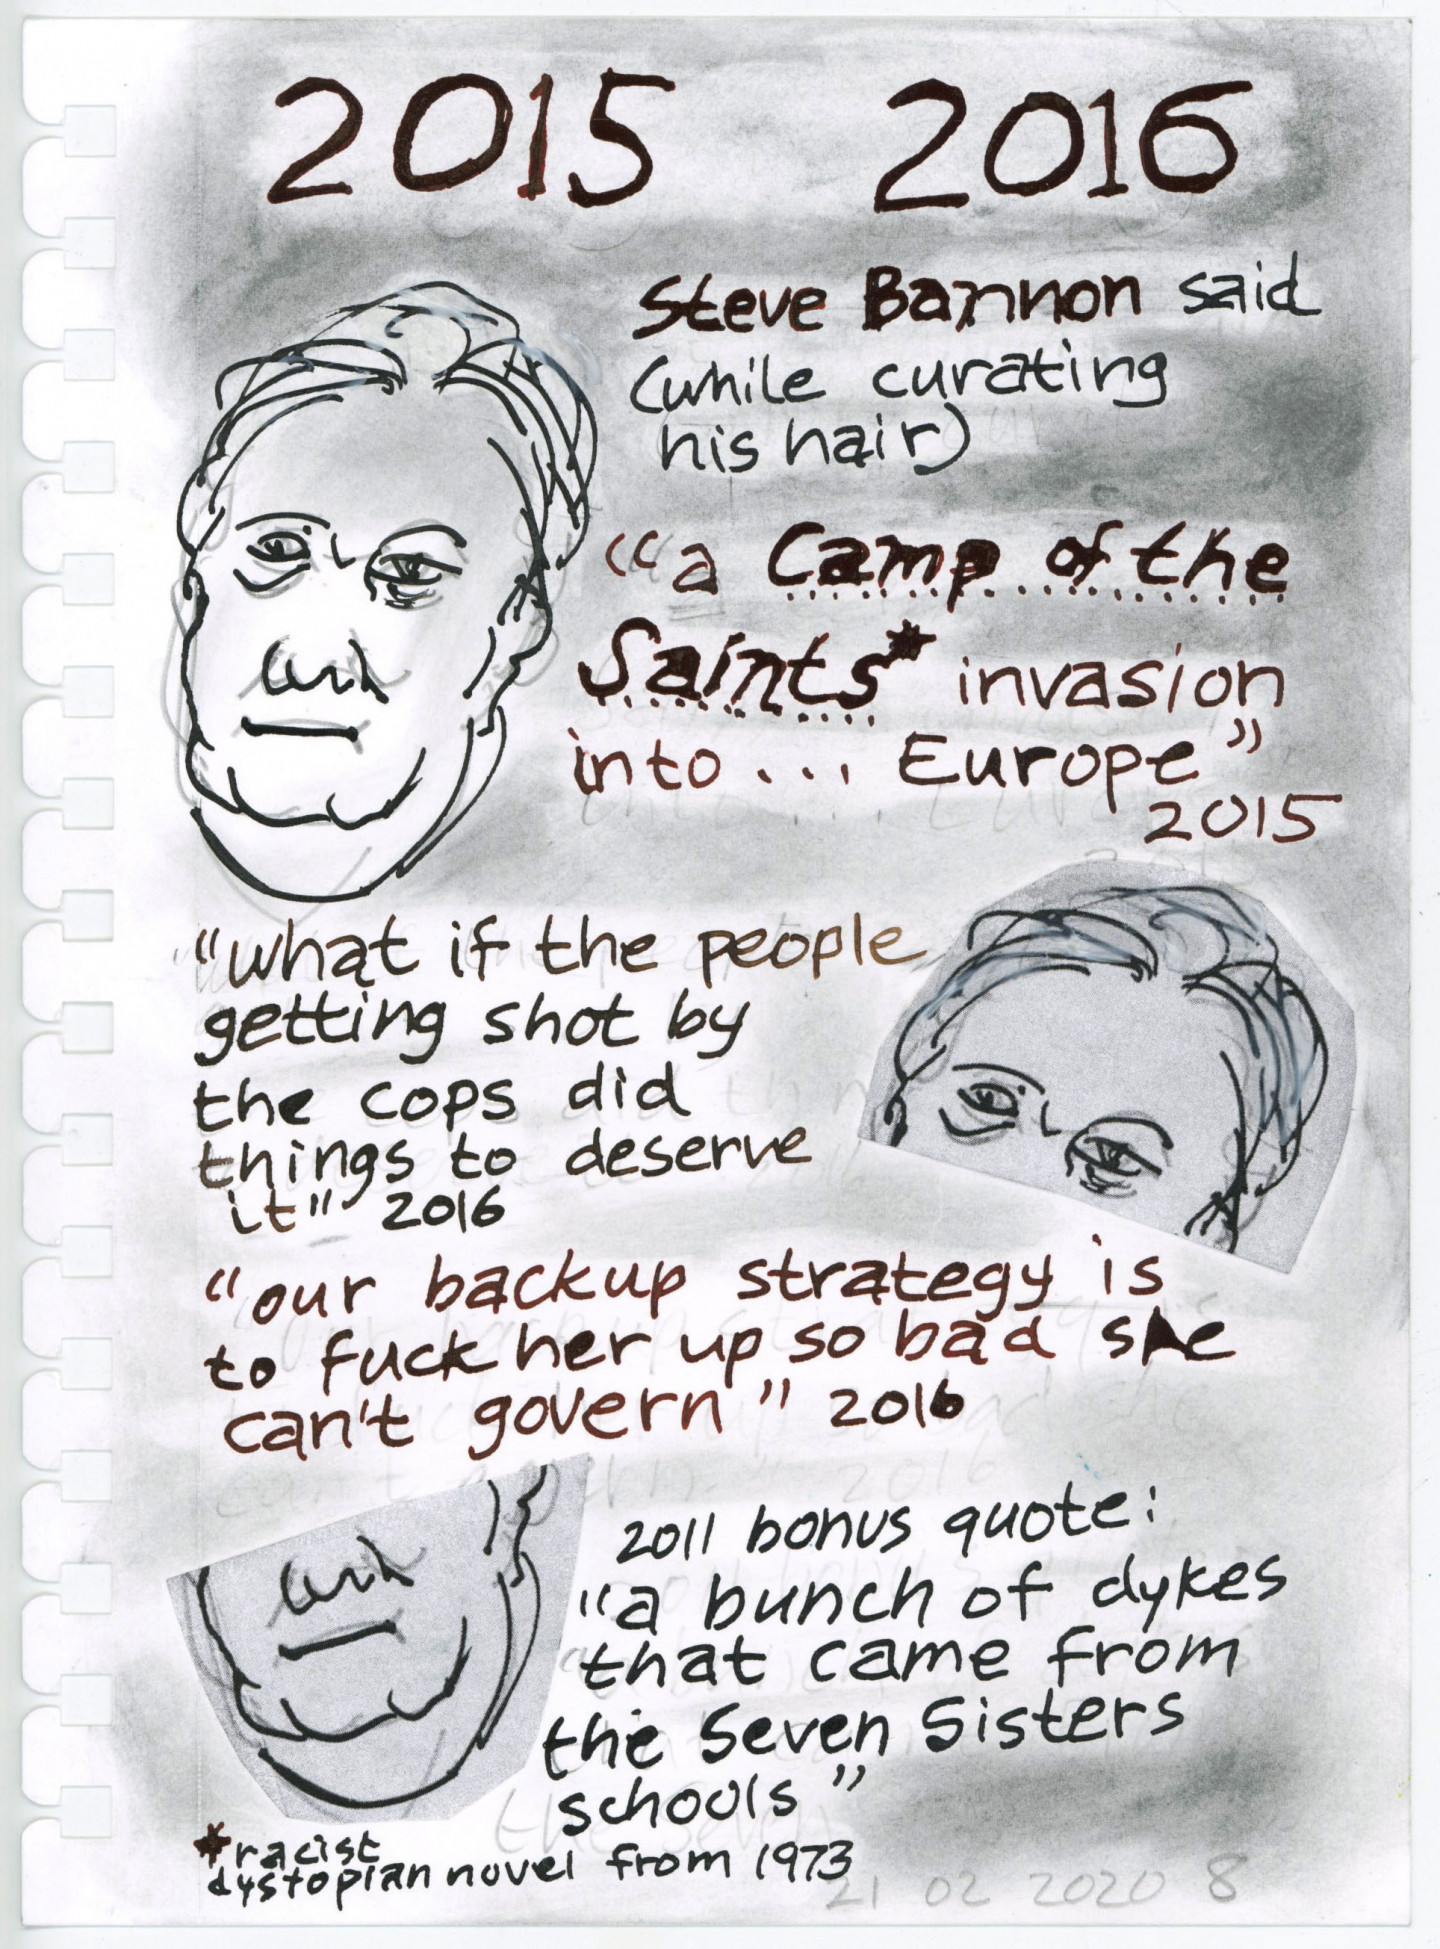 2015 2016
Steve Bannon said
(while curating
his hair)
"a Camp of the
Saints* invasion
into... Europe"
2015
"what if the people
getting shot by
the cops did
things to deserve
it" 2016
"our backup strategy is
to fuck her up so bad she
can't govern" 2016
2011 bonus quote:
"a bunch of dykes
that came from
the Seven Sisters
schools"
*racist
dystopian novel from 1973
21 02 2020 8